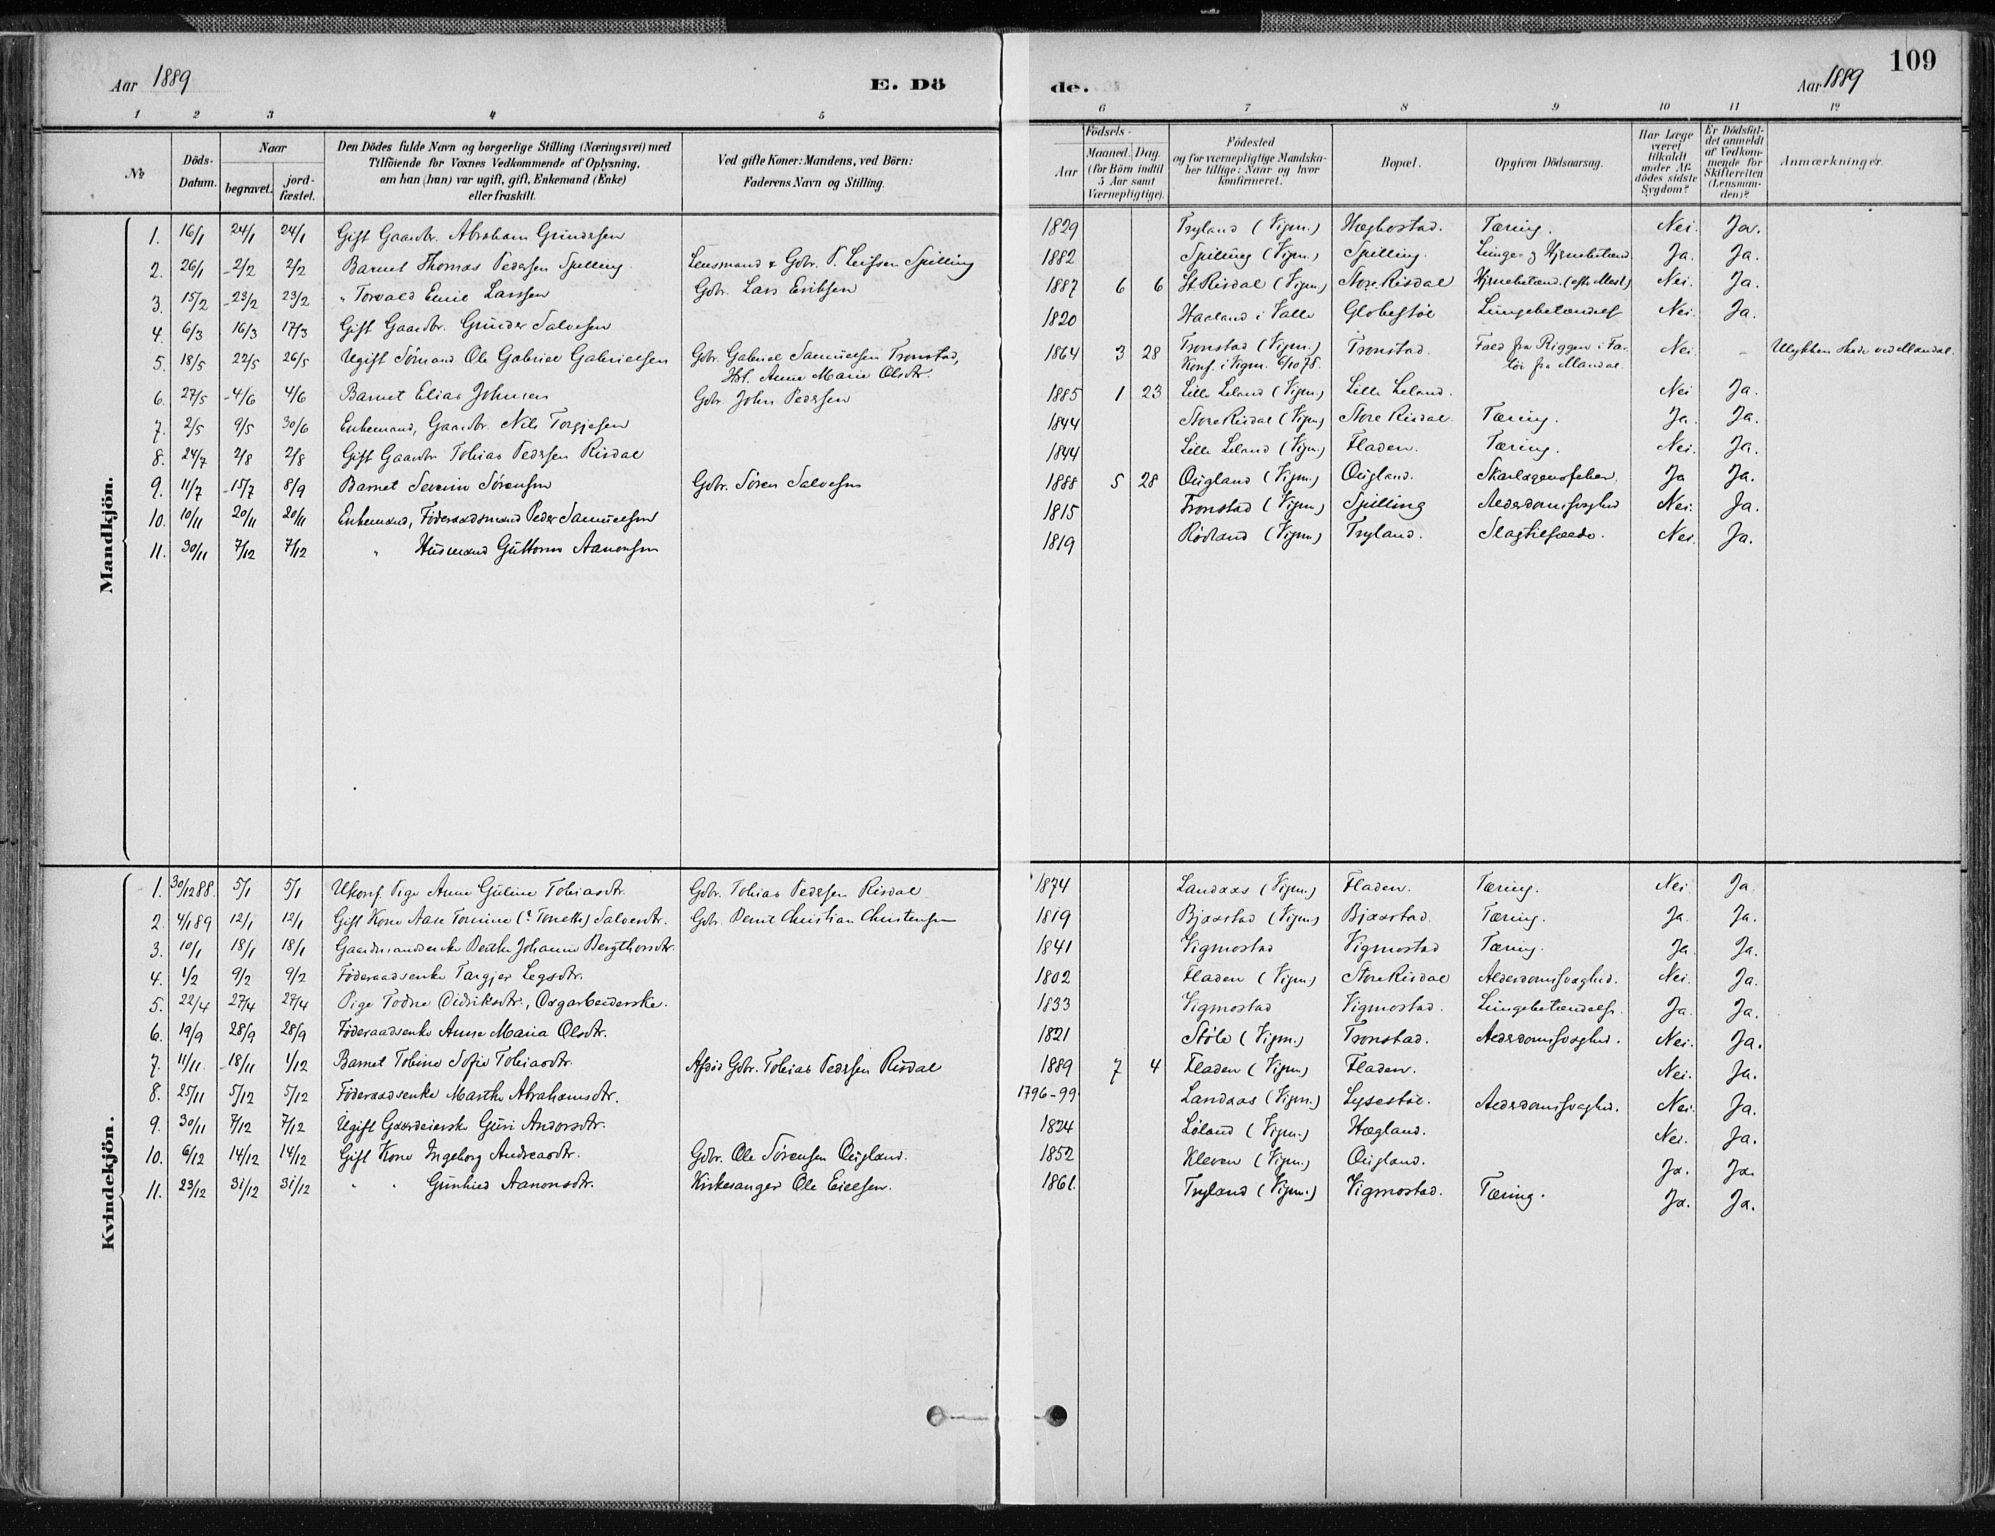 109
Aar 1889 E. Dö de. Aar 1889
1 2 3 4 5 6 7 8 9 10 11 12
№ Döds-Datum. Naar begravet. jord-fæstet. Den Dödes fulde Navn og borgerlige Stilling (Næringsvei) med Tilföiende for Voxnes Vedkommende af Oplysning, om han (hun) var ugift, gift, Enkemand (Enke) eller fraskilt. Ved gifte Koner: Mandens, ved Börn: Faderens Navn og Stilling. Födsels- Aar Maaned. Dag. (for Börn indtil 5 Aar samt Værnepligtige). Födested og for værnepligtige Mandskaber tillige: Naar og hvor konfirmeret. Bopæl. Opgiven Dödsaarsag. Har Læge været tilkaldt under Afdödes sidste Sygdom? Er Dödsfaldet anmeldt af Vedkommende for Skifteretten (Lensmanden)? Anmærkninger.
Mandkjön.
1. 16/1 24/1 24/1 Gift Gaardbr. Abraham Grundesen 1829 Tryland (Vigm.) Hæghostad. Tæring. Nei. Ja.
2. 26/1 -2/2 2/2 Barnet Thomas Pedersen Spilling. Lensmand & Gdbr. P. Leifsen Spilling 1882 Spilling (Vigm.) Spilling. Lunge- og Hjernebetænd. Ja. Ja.
3. 15/2 -23/2 23/2 " Torvald Emil Larssen Gdbr. Lars Eriksen 1887 6 6 St. Risdal (Vigm.) Store Risdal Hjernebetænd. (efter Mesl.) Nei. Ja.
4. 6/3 16/3 17/3 Gift Gaardbr. Grunder Salvesen 1820 Haaland i Valle Globestöl Lungebetændelse Nei. Ja.
5. 18/5 22/5 26/5 Ugift Sömand Ole Gabriel Gabrielsen Gdbr. Gabriel Samuelsen Tronstad, 1864 3 28 Tronstad (Vigm.) Tronstad. Fald fra Riggen i Far- Nei. - Ulykken skede ved Mandal.
Hst. Anne Marie Olsdtr. Konf. i Vigm. 6/10 78. töi fra Mandal.
6. 27/5 -4/6 4/6 Barnet Elias Johnsen Gdbr. John Pedersen 1885 1 23 Lille Leland (Vigm.) Lille Leland. Nei Ja.
7. 2/5 9/5 30/6 Enkemand, Gaardbr. Nils Torgjesen 1844 Store Risdal (Vigm.) Store Risdal. Tæring. Ja. Ja.
8. 24/7 2/8 2/8 Gift Gaardbr Tobias Pedersen Risdal 1844 Lille Leland (Vigm.) Fladen. Tæring. Nei. Ja.
9. 11/7 -15/7 8/9 Barnet Severin Sörensen Gdbr. Sören Salvesen 1888 5 28 Ougland (Vigm.) Ougland. Skarlagensfeber. Ja Ja.
10. 10/11 20/11 20/11 Enkemand, Föderaadsmand Peder Samuelsen 1815 Tronstad (Vigm.) Spilling Alderdomssvaghed Nei. Ja.
11. 30/11 7/12 7/12 " Husmand Guttorm Aanonsen 1819 Rödland (Vigm.) Tryland. Slagtilfælde. Nei. Ja.
Kvindekjön.
1. 30/12 88. 5/1 5/1 Ukonf. Pige Anne Guline Tobiasdtr. Gdbr. Tobias Pedersen Risdal 1874 Landaas (Vigm.) Fladen. Tæring. Nei. Ja
2. 4/1 89 12/1 12/1 Gift Kone Aase Tomine (: Toneth) Salvesdtr. Gdbr. Bernt Christian Christensen 1819 Bjaastad (Vigm.) Bjaastad. Tæring. Ja. Ja.
3. 10/1 18/1 18/1 Gaardmandsenke Berthe Johanne Bergthorsdtr. 1841 Vigmostad Vigmostad Tæring. Ja. Ja.
4. 1/2 9/2 9/2 Föderaadsenke Targjer Legsdtr. 1802 Fladen (Vigm.) Store Risdal Alderdomssvaghed. Nei. Ja.
5. 22/4 27/4 27/4 Pige Todne Didriksdtr, Dagarbeiderske. 1833 Vigmostad Vigmostad. Lungebetændelse. Ja. Ja.
6. 19/9 28/9 28/9 Föderaadsenke Anne Maria Olsdtr. 1821 Stöle (Vigm.) Tronstad. Alderdomssvaghed. Nei. Ja.
7. 11/11 -18/11 1/12 Barnet Tobine Sofie Tobiasdtr. Afdöd Gdbr. Tobias Pedersen Risdal 1889 7 4 Fladen (Vigm.) Fladen. Nei. Ja.
8. 25/11 5/12 5/12 Föderaadsenke Marthe Abrahamsdtr. 1796-99 Landaas (Vigm.) Lysestöl. Alderdomssvaghed. Nei. Ja.
9. 30/11 7/12 7/12 Ugift Gaardeierske Guri Andorsdtr. 1824 Löland (Vigm.) Hægland. Nei. Ja.
10. 6/12 14/12 14/12 Gift Kone Ingeborg Andreasdtr. Gdbr. Ole Sörensen Ougland. 1852 Kleven (Vigm.) Ougland. Ja. Ja.
11. 23/12 31/12 31/12 " " Gunhild Aanonsdtr. Kirkesanger Ole Eielsen. 1861. Tryland (Vigm.) Vigmostad. Tæring. Ja. Ja.